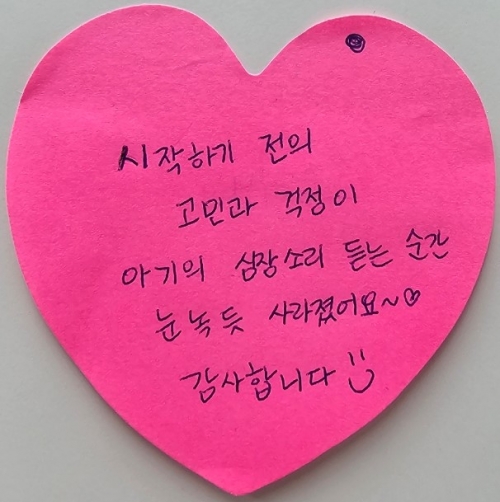 시작하기 전의
고민과 걱정이
아기의 심장소리 듣는 순간
눈녹듯 사라졌어요~♡
감사합니다 :)